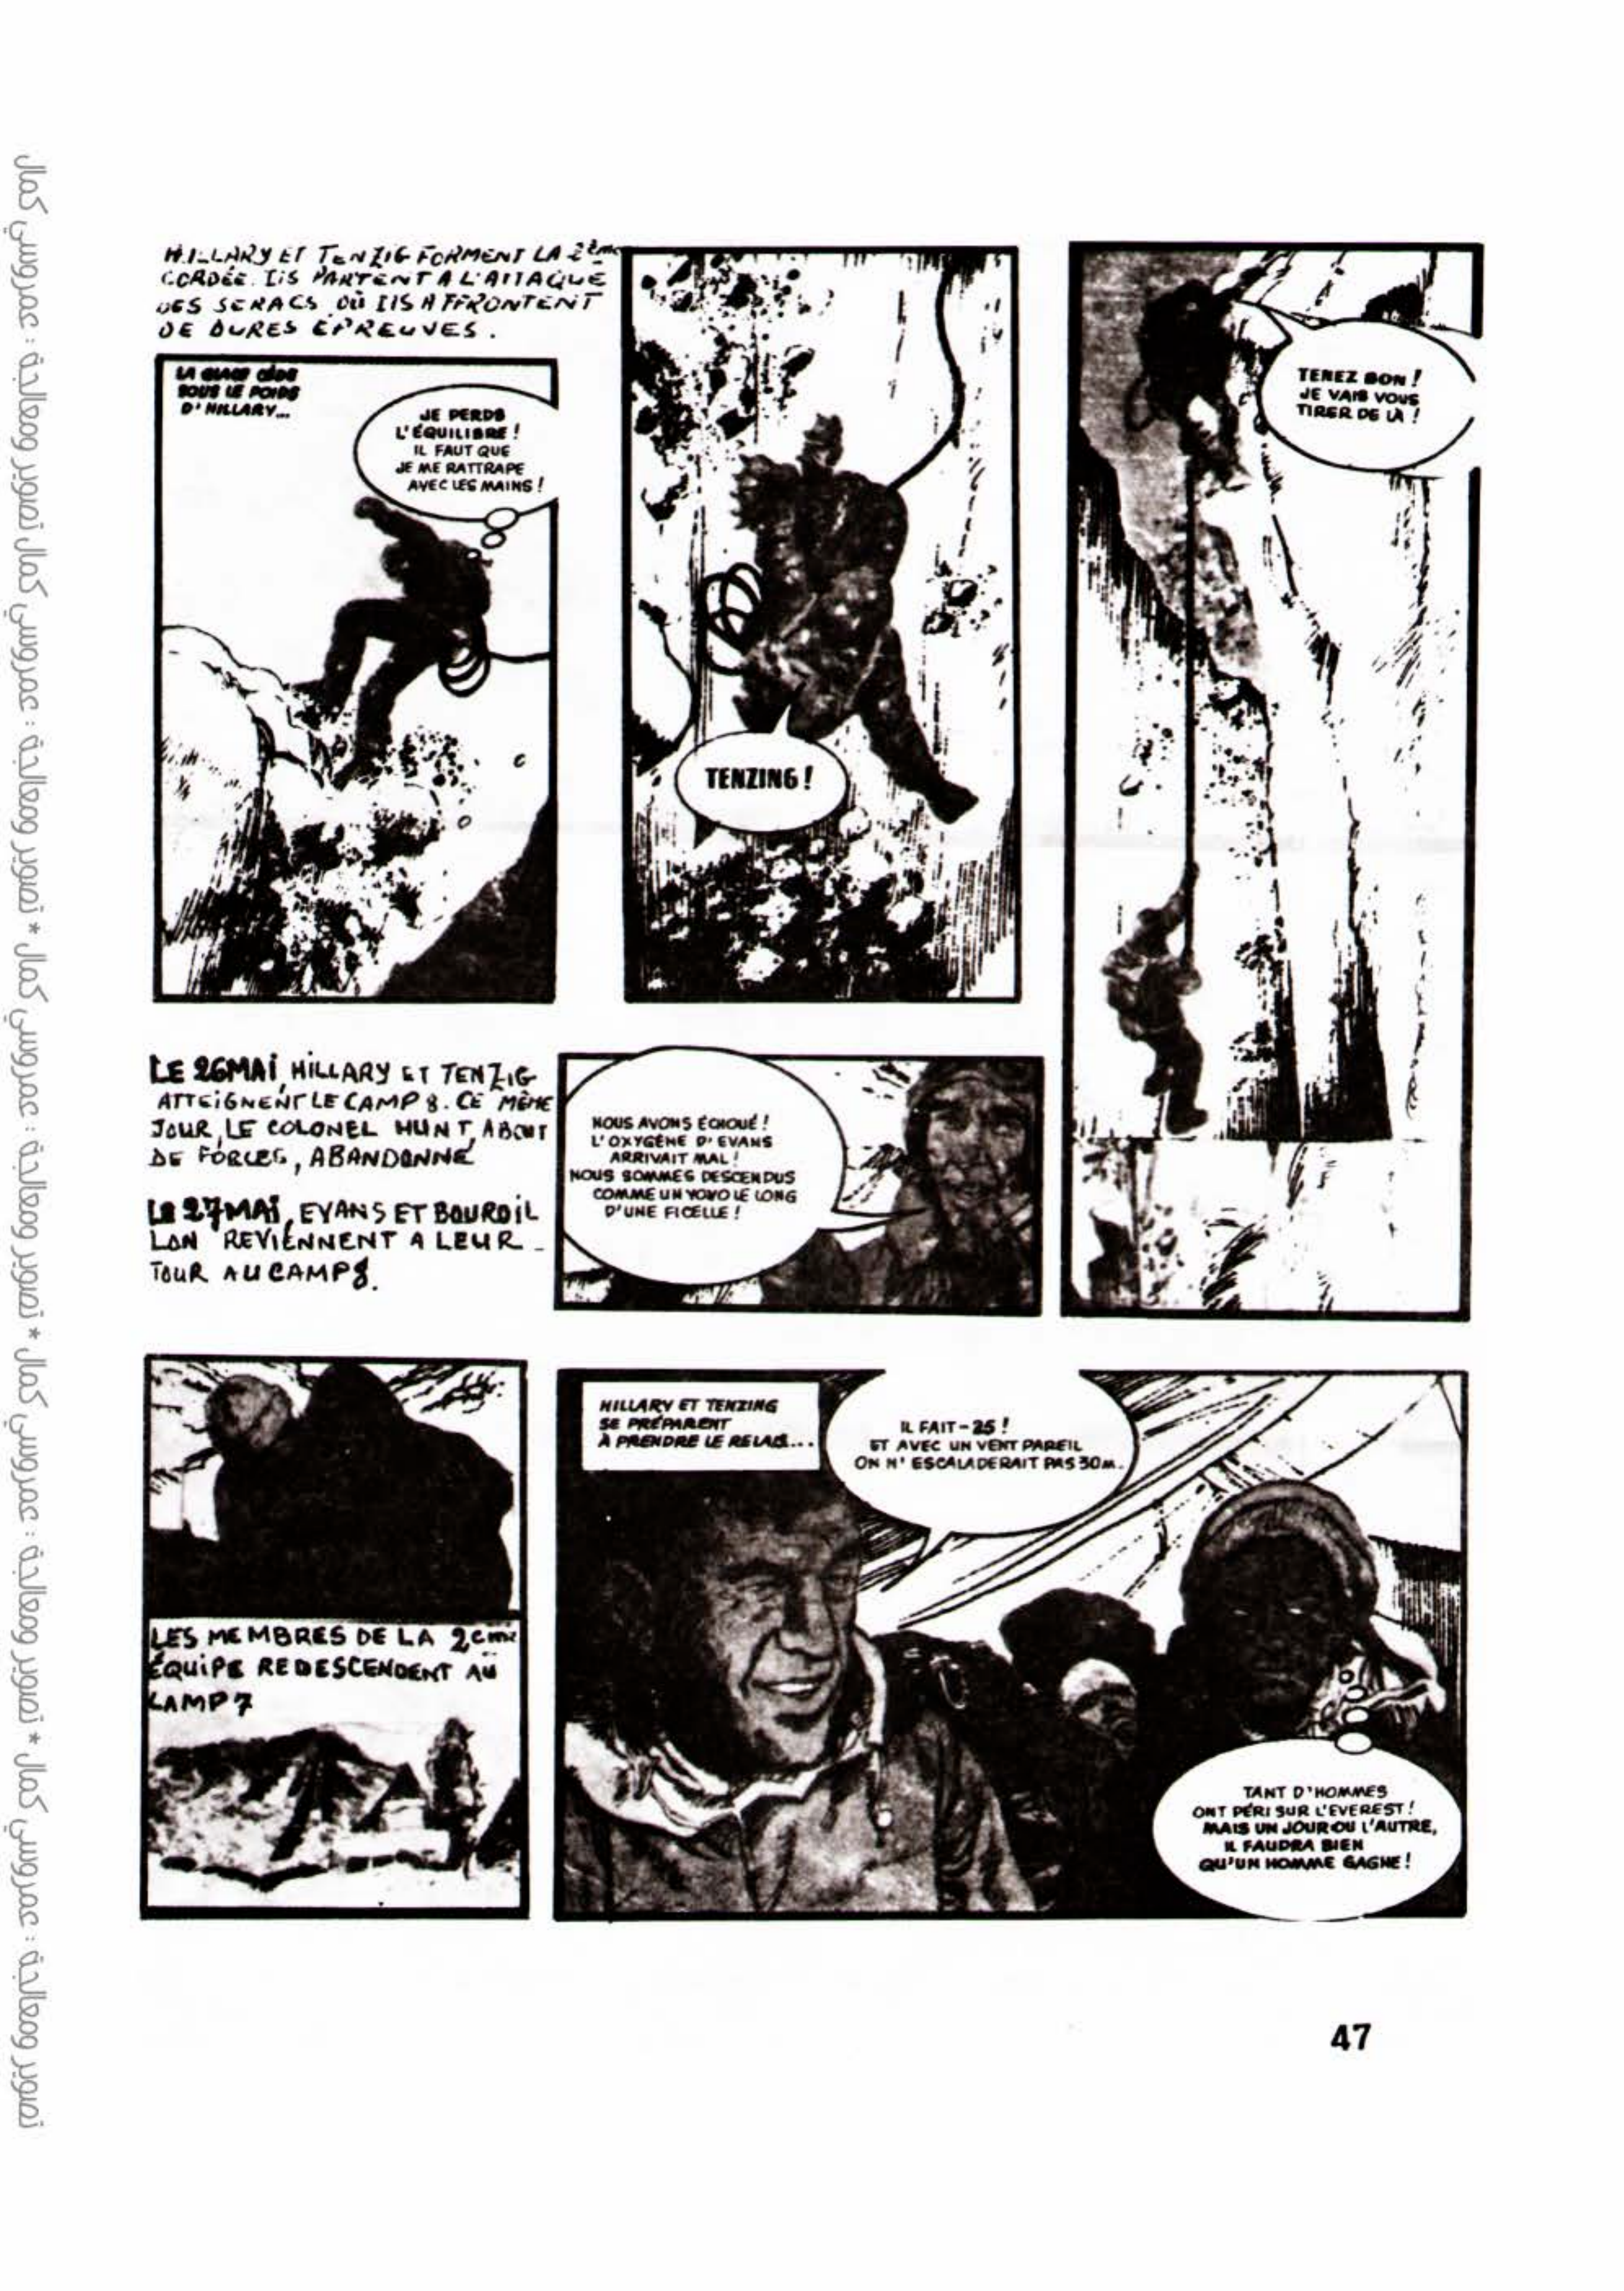 HILLARY ET TENZIG FORMENT LA 2ème
CORDÉE. ILS PARTENT A L'ATTAQUE
DES SERACS OÙ ILS AFFRONTENT
DE DURES ÉPREUVES.
LA GLACE CÈDE
SOUS LE POIDS
D'HILLARY...
JE PERDS
L'ÉQUILIBRE !
IL FAUT QUE
JE ME RATTRAPE
AVEC LES MAINS !
TENZING !
TENEZ BON !
JE VAIS VOUS
TIRER DE LÀ !
LE 26 MAI, HILLARY ET TENZIG
ATTEIGNENT LE CAMP 8. CE MÊME
JOUR, LE COLONEL HUNT, A BOUT
DE FORCES, ABANDONNE
LE 27 MAI, EVANS ET BOURDIL
LON REVIENNENT A LEUR
TOUR AU CAMP 8.
NOUS AVONS ÉCHOUÉ !
L'OXYGÈNE D'EVANS
ARRIVAIT MAL !
NOUS SOMMES DESCENDUS
COMME UN YOYO LE LONG
D'UNE FICELLE !
LES MEMBRES DE LA 2ème
ÉQUIPE REDESCENDENT AU
CAMP 7
HILLARY ET TENZING
SE PRÉPARENT
À PRENDRE LE RELAIS...
IL FAIT -25 !
ET AVEC UN VENT PAREIL
ON N'ESCALADERAIT PAS 30M.
TANT D'HOMMES
ONT PÉRI SUR L'EVEREST !
MAIS UN JOUR OU L'AUTRE,
IL FAUDRA BIEN
QU'UN HOMME GAGNE !
47
تصوير ومعالجة : عمروسي كمال * تصوير ومعالجة : عمروسي كمال * تصوير ومعالجة : عمروسي كمال * تصوير ومعالجة : عمروسي كمال تصوير ومعالجة : عمروسي كمال